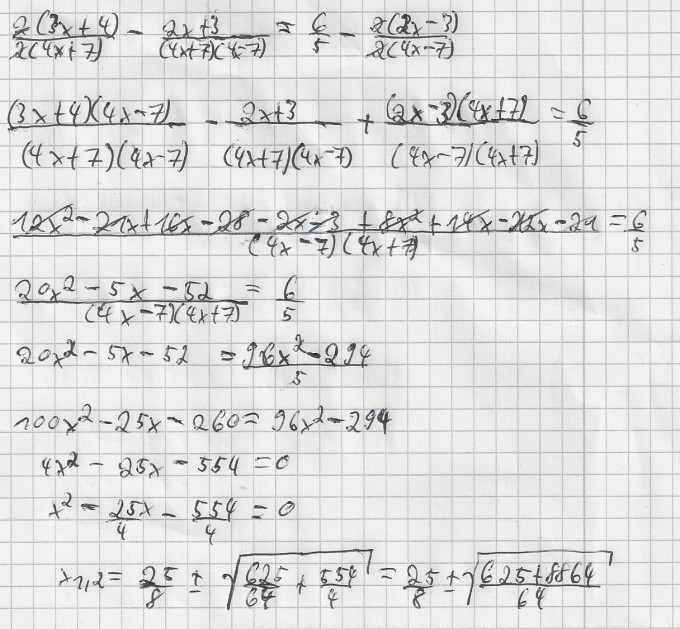 2(3x+4)/2(4x+7) - 2x+3/(4x+7)(4x-7) = 6/5 - 2(2x-3)/2(4x-7)
(3x+4)(4x-7)/(4x+7)(4x-7) - 2x+3/(4x+7)(4x-7) + (2x-3)(4x+7)/(4x-7)(4x+7) = 6/5
12x²-21x+16x-28-2x-3+8x²+14x-12x-21/(4x-7)(4x+7) = 6/5
20x²-5x-52/(4x-7)(4x+7) = 6/5
20x²-5x-52 = 96x²-294/5
100x²-25x-260=96x²-294
4x²-25x-554=0
x²-25x/4-554/4=0
x1,2=25/8±√(625/64+554/4)=25/8±√(625+8864/64)